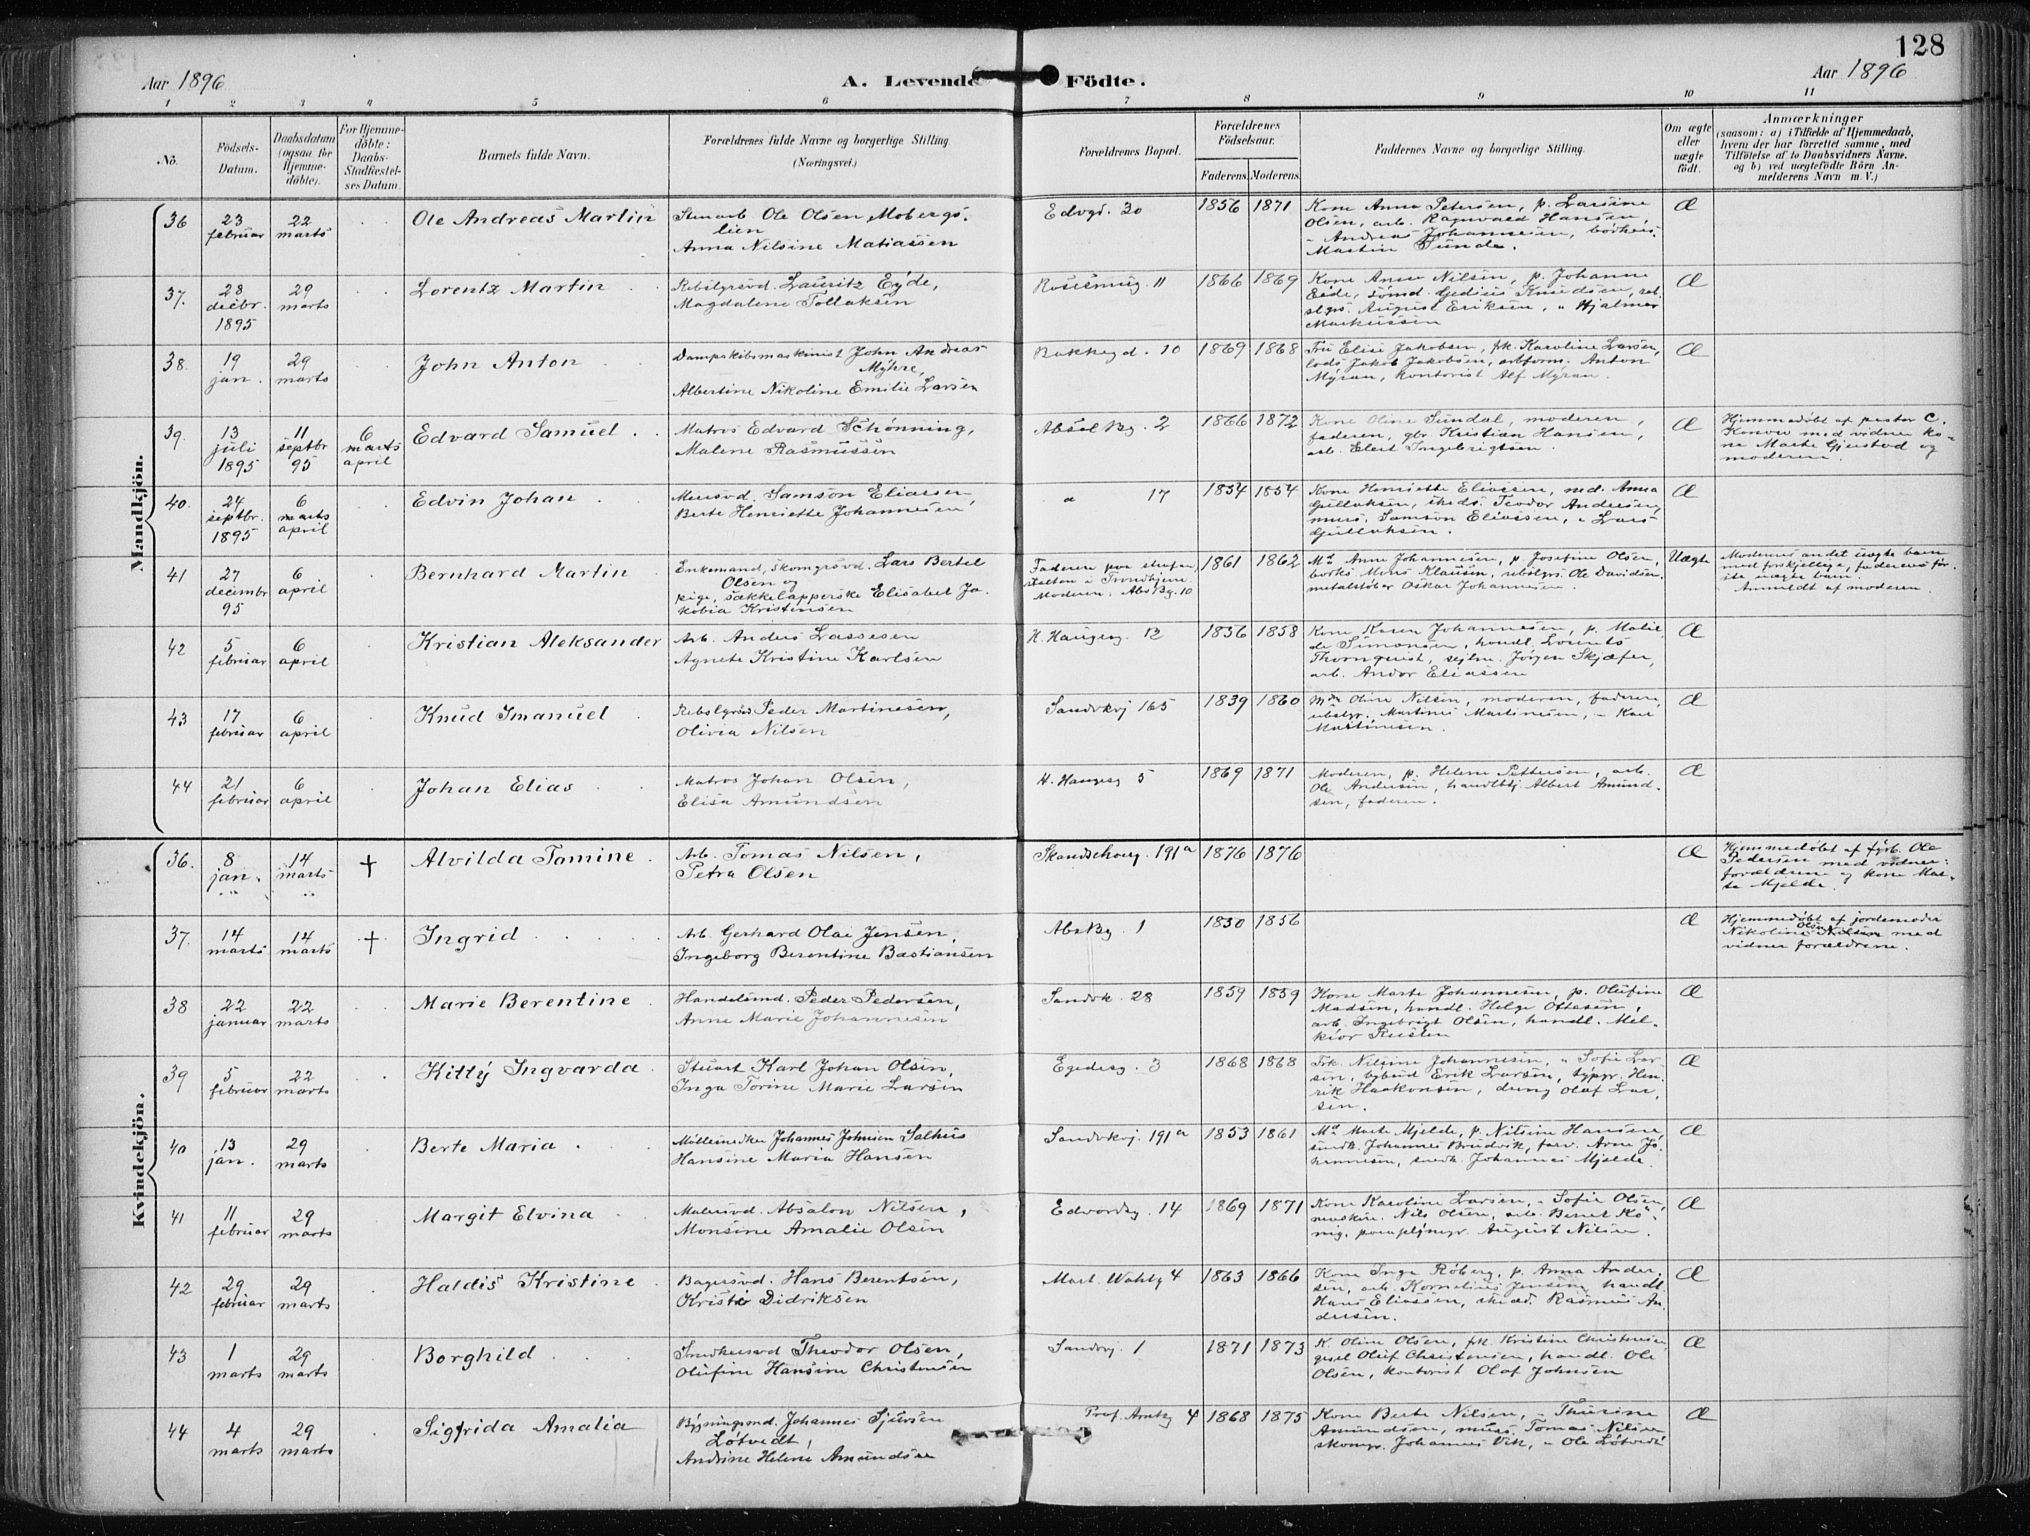 128
Aar 1896
A. Levende Födte.
Aar 1896
1 2 3 4 5 6 7 8 9 10 11
No.
Födsels-
Datum.
Daabsdatum
(ogsaa for
Hjemme-
döbte).
For Hjemme-
döbte:
Daabs-
Stadfæstel-
ses Datum.
Barnets fulde Navn.
Forældrenes fulde Navne og borgerlige Stilling
(Næringsvei.)
Forældrenes Bopæl.
Forældrenes
Födselsaar.
Faderens. Moderens.
Faddernes Navne og borgerlige Stilling.
Om ægte
eller
uægte
födt.
Anmærkninger
(saasom: a) i Tilfælde af Hjemmedaab,
hvem der har forrettet samme, med
Tilföielse af to Daabsvidners Navne,
og b) ved uægtefödte Börn An-
melderens Navn m. V.)
Mandkjön.
36 23 februar 22 marts Ole Andreas Martin
Ole Olsen Mobergs-
lien
Anna Nilsine Matiassen
Edvgd. 30 1856 1871
Kone Anna Petersen, p. Larsine
Olsen, arb. Ragnvald Hansen,
" Andreas Johannesen,
Martin Sunde.
Æ
37. 28 decbr. 1895 29 marts Lorentz Martin
Rebslgrsvd. Lauritz Eyde,
Magdalene Tollaksen
11 1866 1869
Kone Anna Nilsen, p. Johanne
Eide, Knudsen,
August Eriksen, " Hjalmar
Markussen
Æ
38. 19 jan. 29 marts John Anton
Dampskibsmaskinist John Andreas
Myhre,
Albertine Nikoline Emilie Larsen
Bakkegd. 10 1869 1868
Fru Elise Jakobsen, frk. Karoline Larsen,
lods Jakob Jakobsen, arbform. Anton
Myran, kontorist Alf Myran.
Æ
39. 13 juli 1895 11 septbr 95 6 marts april Edvard Samuel
Matros Edvard Schønning,
Malene Rasmussen
Absal Bg. 2 1866 1872
Kone Oline Sundal, moderen,
faderen, gbr. Kristian Hansen,
arb. Elert Ingebrigtsen.
Æ
Hjemmedøbt af pastor C.
Konow med vidner ko-
ne Marte Gjerstad og
moderen.
40. 24 septbr. 1895 6 marts april Edvin Johan
Mursvd. Samson Eliassen,
Berte Henriette Johannesen
" 17 1854 1854
Kone Henriette Eliassen, md. Anna
Gullaksen, Teodor Andersen,
murs. Samson Eliassen, " Lars
Gullaksen.
Æ
41 27 decembr 95 6 april Bernhard Martin
Enkemand, skomgrsvd. Lars Bertel
Olsen og
pige, sækkelapperske Elisabet Ja-
kobia Kristensen
Faderen paa strafan-
stalten i Trondhjem.
Moderen: Abs Bg. 10
1861 1862
Md Anne Johannesen, p. Josefine Olsen,
Mons Klausen, rebslgrs. Ole Davidsen,
metalstøber Oskar Johannesen.
Uægte
Moderens andet uægte barn
med forskjellige, faderens før-
ste uægte barn.
Anmeldt af moderen.
42 5 februar 6 april Kristian Aleksander
Arb. Anders Lassesen
Agnete Kristine Karlsen
H. Haugesg. 12 1856 1858
Kone Karen Johannesen, p. Matil-
de Simonsen, handl. Lorents
Thornquist, sejlm. Jørgen Skjæfer,
arb. Andor Eliassen
Æ
43 17 februar 6 april Knud Imanuel
Rebslgrsvd Peder Martinesen,
Olivia Nilsen
Sandvkvj 165 1839 1860
Mdm Oline Nilsen, moderen, faderen,
rebslgr. Martines Martinesen, " Karl
Martinesen.
Æ
44 21 februar 6 april Johan Elias
Matros Johan Olsen,
Elisa Amundsen
H. Haugesg 5 1869 1871
Moderen, p. Helene Pettersen, arb.
Ole Andersen, handlbtj. Albert Amund-
sen, faderen.
Æ
Kvindekjön.
36. 8 jan. 14 marts † Alvilda Tomine
Arb. Tomas Nilsen,
Petra Olsen
191a 1876 1876
Æ
Hjemmedøbt af fyrb. Ole
Pedersen med vidner:
forældrene og kone Mar-
ta Mjelde.
37. 14 marts 14 marts † Ingrid
Arb. Gerhard Olai Jensen,
Ingeborg Berentine Bastiansen
Abs Bg. 1 1850 1856
Æ
Hjemmedøbt af jordemoder
Nikoline Olsen Nilsen med
vidner forældrene.
38 22 januar 22 marts Marie Berentine
Handelsmd. Peder Pedersen,
Anne Marie Johannesen
Sandvk. 28 1859 1859
Kone Marte Johannesen, p. Olufine
Madsen, handl. Helge Ottesen,
arb. Ingebrigt Olsen, handl. Mel-
kior Reisten
Æ
39 5 februar 22 marts Kitty Ingvarda
Stuart Karl Johan Olsen,
Inga Torine Marie Larsen
Egedesg. 3 1868 1868
Frk. Nilsine Johannesen, " Sofie Lar-
sen, bybud Erik Larsen, typgr. Hen-
rik Haakonsen, dreng Olaf Lar-
sen.
Æ
40 13 jan. 29 marts Berte Maria
Johannes Johnsen Salhus
Hansine Maria Hansen
Sandvkvj. 191a 1853 1861
Md Marte Mjelde, p. Nilsine Hansen,
snedk. Johannes Brudvik, farv. Arne Jo-
hannesen, snedk. Johannes Mjelde.
Æ
41 11 februar 29 marts Margit Elvina
Malersvd. Absalon Nilsen,
Monsine Amalie Olsen
Edvardsg. 14 1869 1871
Kone Karoline Larsen, " Sofie Olsen,
Nils Olsen, arb. Bernt Kö-
nig, August Nilsen
Æ
42 29 februar 29 marts Haldis Kristine
Bagersvd. Hans Berentsen,
Kristi Didriksen
Mart. Wahlg 4 1863 1866
Kone Inga Røberg, p. Anna Ander-
sen, arb. Kornelius Jensen, handl.
Hans Eliassen, Rasmus An-
dersen.
Æ
43 1 marts 29 marts Borghild
Snedkersvd Theodor Olsen,
Olufine Hansine Christensen
Sandvj. 1 1871 1873
K. Oline Olsen, frk. Kristine Christensen,
Oluf Christensen, handl. Ole
Olsen, kontorist Olaf Johnsen
Æ
44 4 marts 29 marts Sigfrida Amalia
Bygningsmd. Johannes Sjursen
Løtvedt,
Andrine Helene Amundsen
Prof. 4 1868 1875
Kone Berte Nilsen, " Thurine
Amundsen, murs. Tomas Nilsen,
skomgr. Johannes Vik, " Ole Løtvedt
Æ